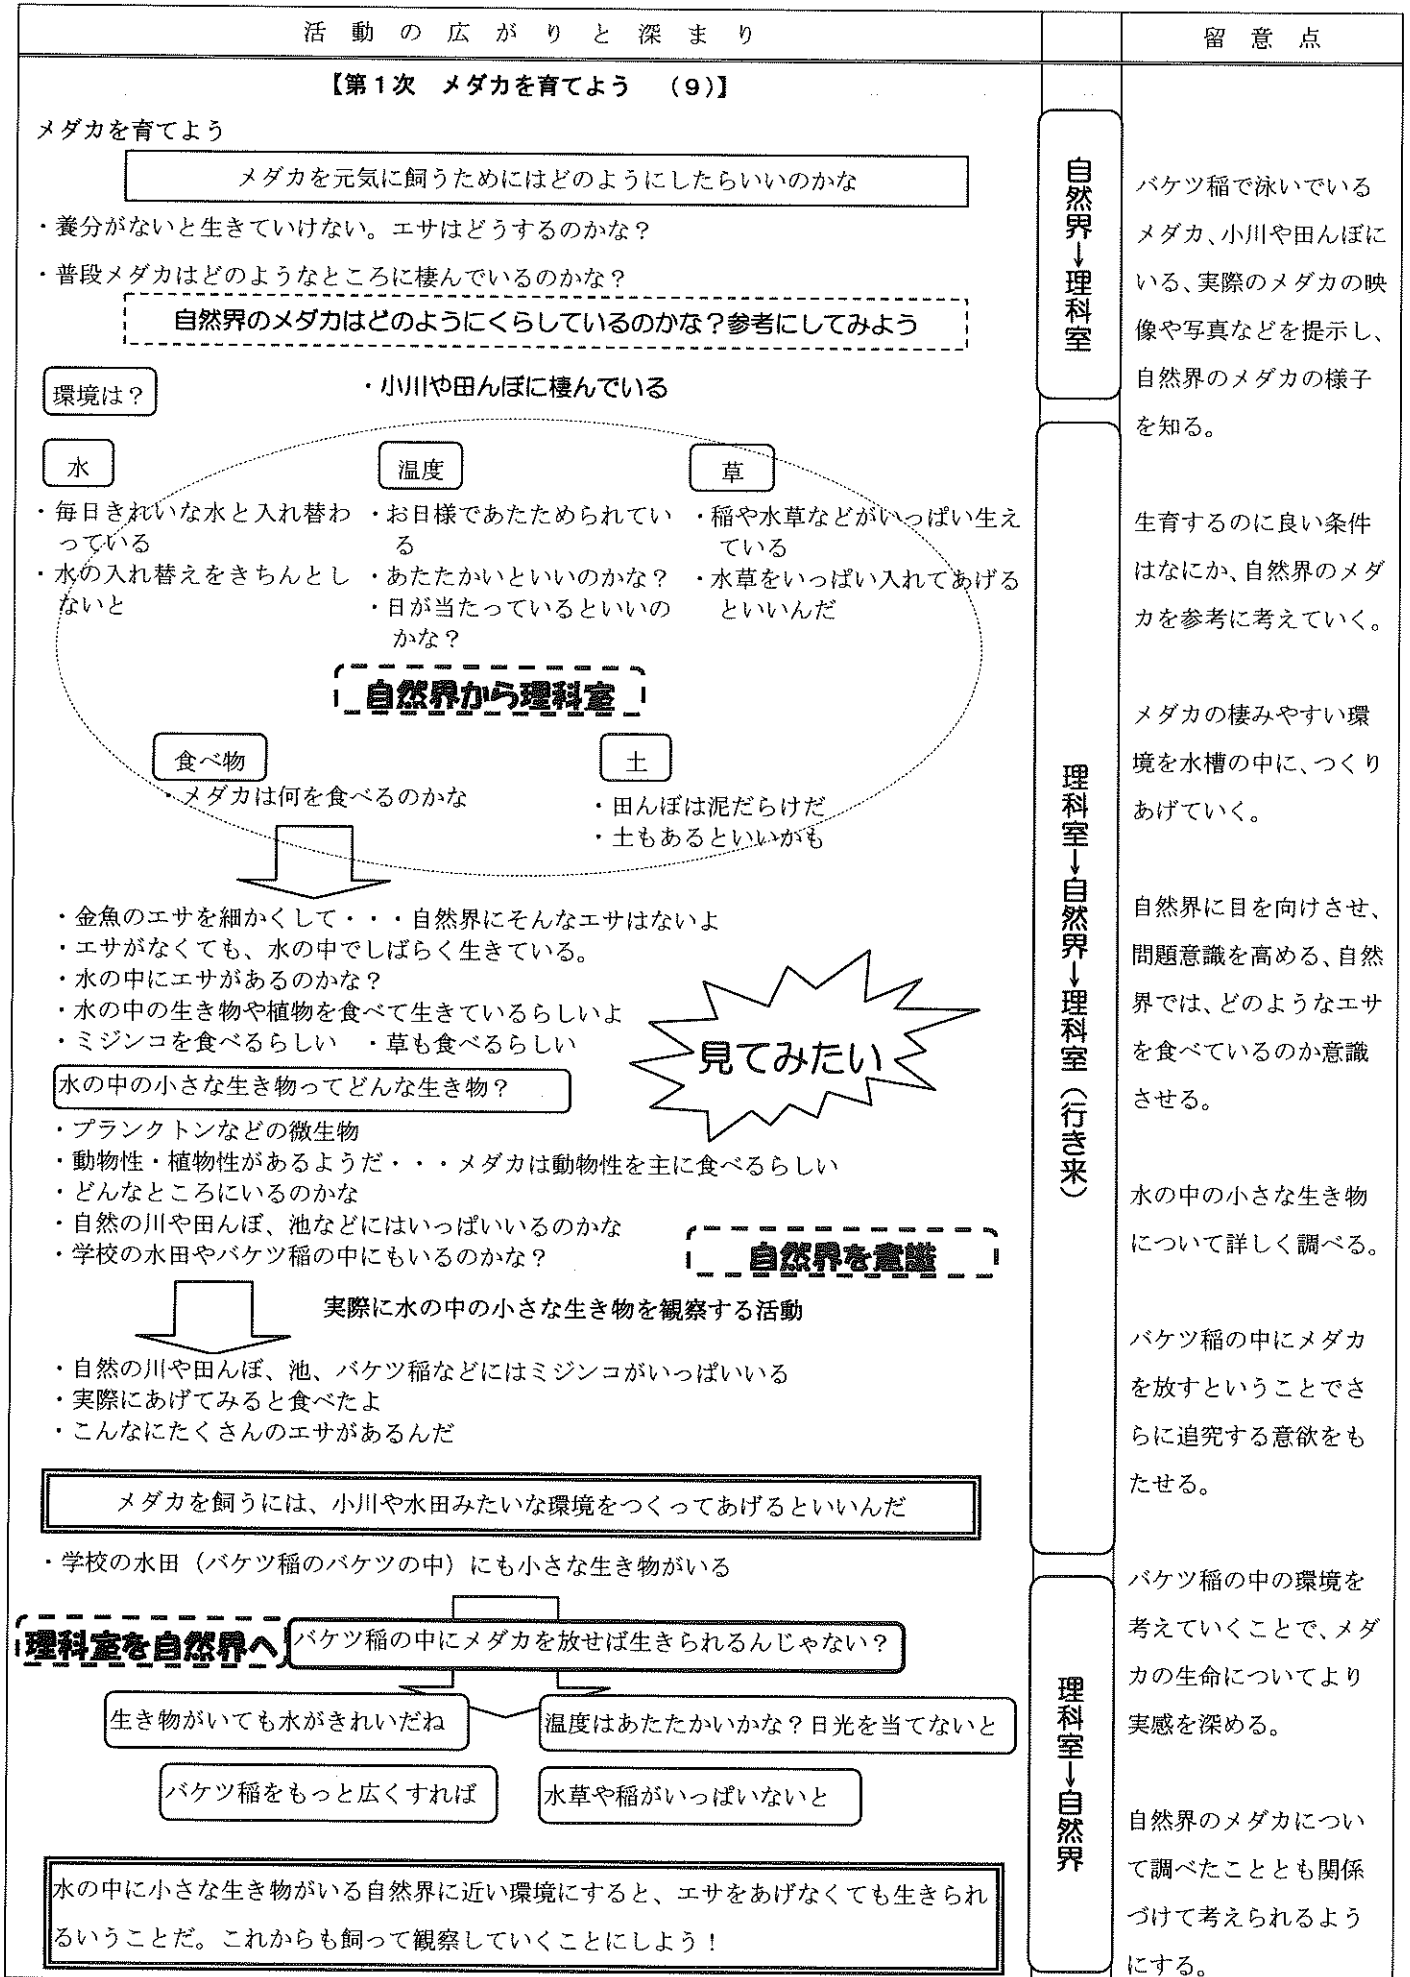 活動の広がりと深まり
留意点
【第1次 メダカを育てよう (9)】
メダカを育てよう
メダカを元気に飼うためにはどのようにしたらいいのかな
・養分がないと生きていけない。エサはどうするのかな?
・普段メダカはどのようなところに棲んでいるのかな?
自然界のメダカはどのようにくらしているのかな?参考にしてみよう
環境は?
・小川や田んぼに棲んでいる
水
・毎日きれいな水と入れ替わ
っている
・水の入れ替えをきちんとし
ないと
温度
・お日様であたためられてい
る
・あたたかいといいのかな?
・日が当たっているといいの
かな?
草
・稲や水草などがいっぱい生え
ている
・水草をいっぱい入れてあげる
といいんだ
自然界から理科室
食べ物
・メダカは何を食べるのかな
土
・田んぼは泥だらけだ
・土もあるといいかも
・金魚のエサを細かくして・・・自然界にそんなエサはないよ
・エサがなくても、水の中でしばらく生きている。
・水の中にエサがあるのかな?
・水の中の生き物や植物を食べて生きているらしいよ
・ミジンコを食べるらしい ・草も食べるらしい
見てみたい
水の中の小さな生き物ってどんな生き物?
・プランクトンなどの微生物
・動物性・植物性があるようだ・・・メダカは動物性を主に食べるらしい
・どんなところにいるのかな
・自然の川や田んぼ、池などにはいっぱいいるのかな
・学校の水田やバケツ稲の中にもいるのかな?
自然界を意識
実際に水の中の小さな生き物を観察する活動
・自然の川や田んぼ、池、バケツ稲などにはミジンコがいっぱいいる
・実際にあげてみると食べたよ
・こんなにたくさんのエサがあるんだ
メダカを飼うには、小川や水田みたいな環境をつくってあげるといいんだ
・学校の水田(バケツ稲のバケツの中)にも小さな生き物がいる
理科室を自然界へ
バケツ稲の中にメダカを放せば生きられるんじゃない?
生き物がいても水がきれいだね
温度はあたたかいかな?日光を当てないと
バケツ稲をもっと広くすれば
水草や稲がいっぱいないと
水の中に小さな生き物がいる自然界に近い環境にすると、エサをあげなくても生きられ
るいうことだ。これからも飼って観察していくことにしよう!
自然界→理科室
理科室→自然界→理科室(行き来)
理科室→自然界
バケツ稲で泳いでいる
メダカ、小川や田んぼに
いる、実際のメダカの映
像や写真などを提示し、
自然界のメダカの様子
を知る。
生育するのに良い条件
はなにか、自然界のメダ
カを参考に考えていく。
メダカの棲みやすい環
境を水槽の中に、つくり
あげていく。
自然界に目を向けさせ、
問題意識を高める、自然
界では、どのようなエサ
を食べているのか意識
させる。
水の中の小さな生き物
について詳しく調べる。
バケツ稲の中にメダカ
を放すということでさ
らに追究する意欲をも
たせる。
バケツ稲の中の環境を
考えていくことで、メダ
カの生命についてより
実感を深める。
自然界のメダカについ
て調べたこととも関係
づけて考えられるよう
にする。